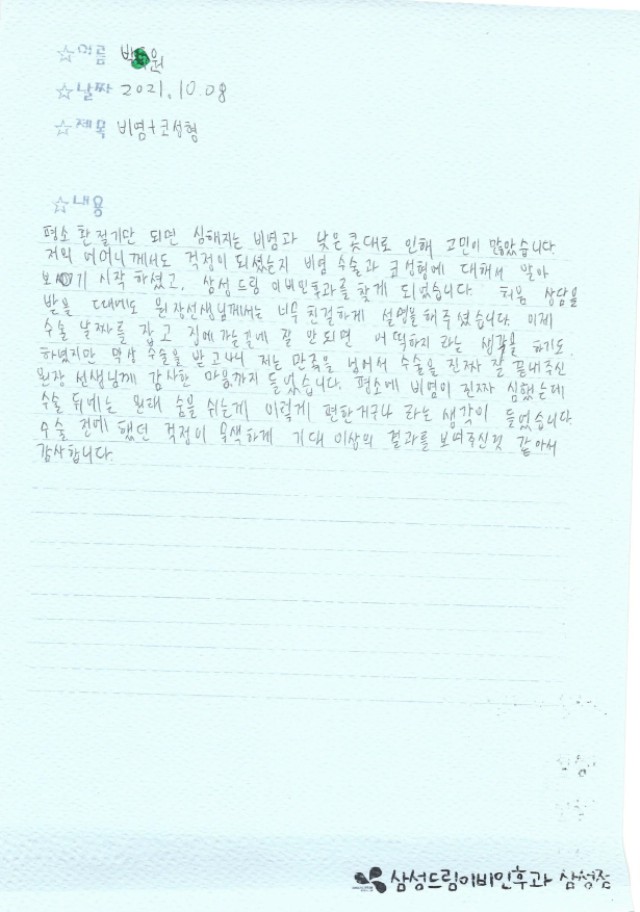 ☆이름 박 원
☆날짜 2021.10.08
☆제목 비염+코성형
☆내용
평소 환절기만 되면 심해지는 비염과 낮은 콧대로 인해 고민이 많았습니다.
저희 어머니께서도 걱정이 되셨는지 비염 수술과 코성형에 대해서 알아
보시기 시작 하셨고, 삼성드림 이비인후과를 찾게 되었습니다. 처음 상담을
받을 때에도 원장선생님께서는 너무 친절하게 설명을해주셨습니다. 이제
수술 날짜를 잡고 집에가는길에 잘 안되면 어떡하지 라는 생각을 하기도
하였지만 막상 수술을 받고나니 저는 만족을 넘어서 수술을 진짜 잘 끝내주신
원장 선생님께 감사한 마음까지 들었습니다. 평소에 비염이 진짜 심했는데
수술 뒤에는 원래 숨을 쉬는게 이렇게 편한거구나 라는 생각이 들었습니다.
수술 전에 했던 걱정이 무색하게 기대 이상의 결과를 보여주신것 같아서
감사합니다.
삼성드림이비인후과 삼성점